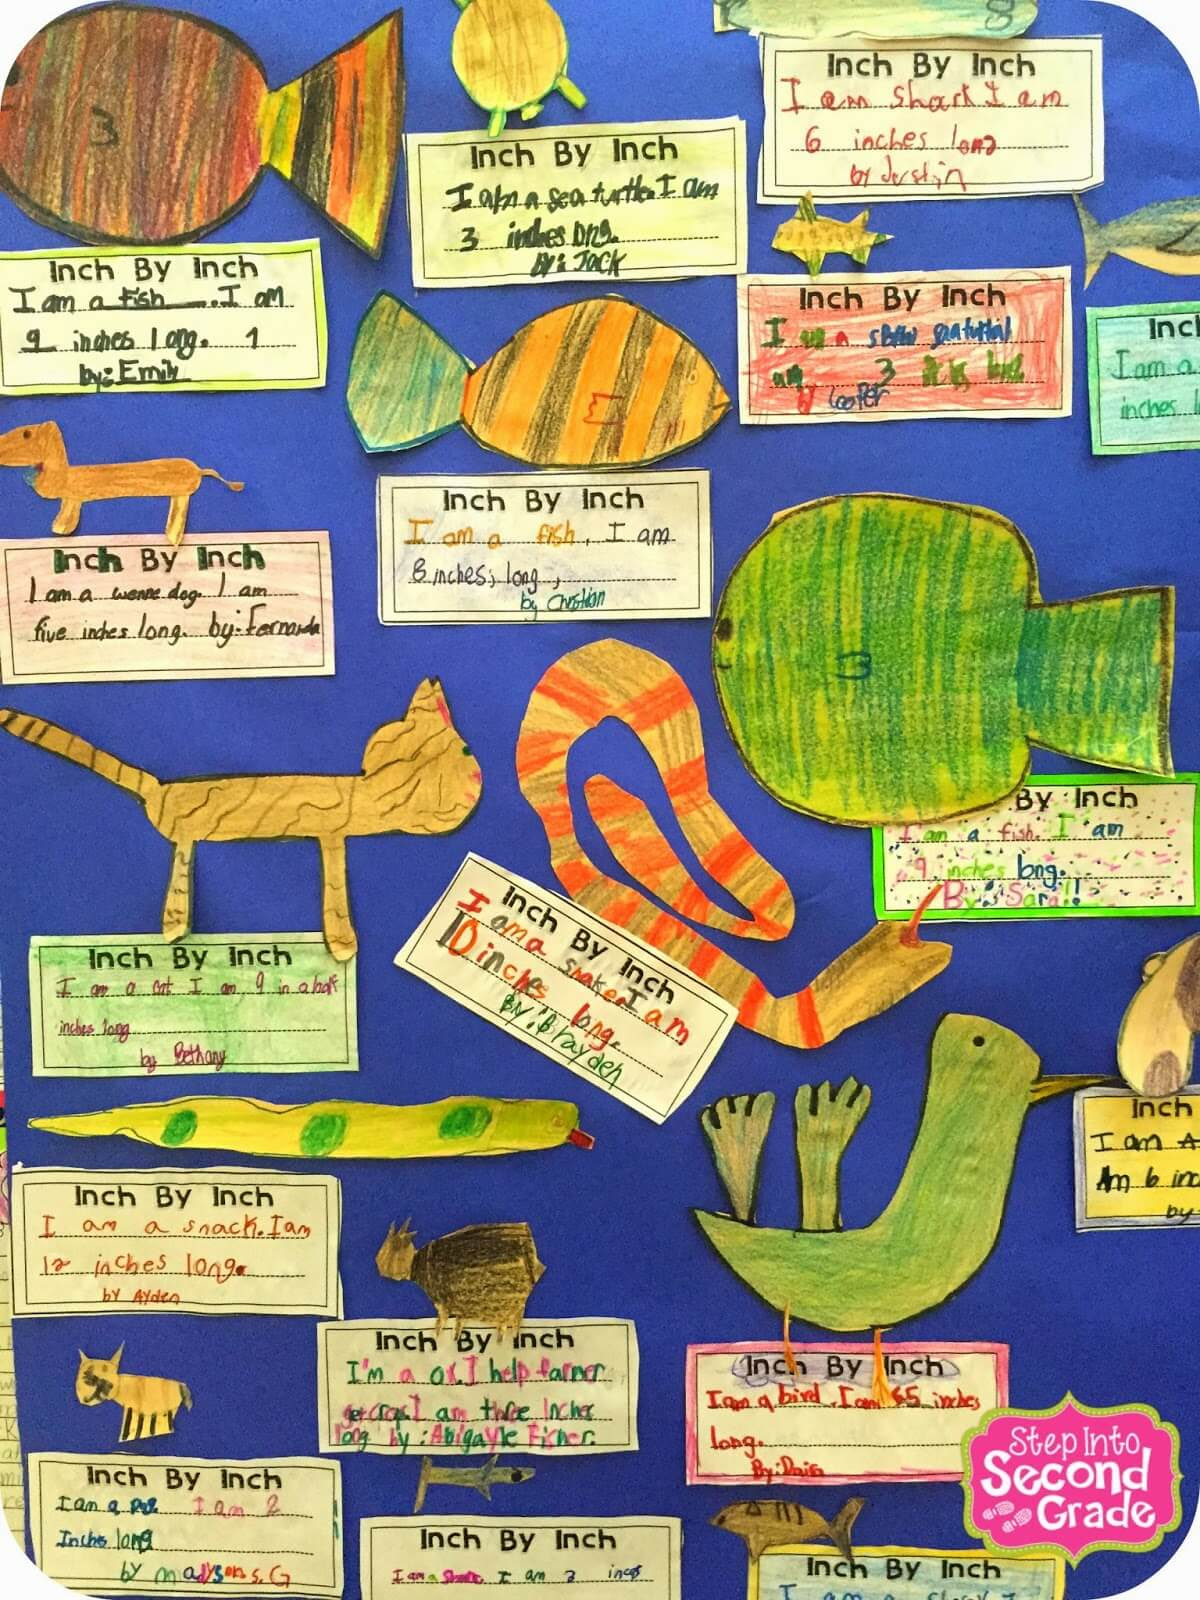 Inch By Inch
I am shark I am
6 inches long
by Justin
Inch By Inch
I am a sea turtle. I am
3 inches lng.
By: Jack
Inch By Inch
I am a fish. I am
9 inches long. 1
by: Emily
3
Inch By Inch
I am a
3 it is
by Cooper
Inch
I am a
inches
Inch By Inch
I am a fish, I am
8 inches, long,
by Christian
Inch By Inch
I am a wenne dog. I am
five inches long. by: Fernanda
3
By Inch
I am a fish. I am
9 inches long.
By: Sara!!
Inch By Inch
I am a snake. I am
10 inches long.
By: Brayden
Inch By Inch
I am a cat I am 9 in a half
inches long
by Bethany
Inch
I am A
Am 6 inc
by
Inch By Inch
I am a snack. I am
12 inches long.
by Ayden
Inch By Inch
I'm a ox. I help farmer
get crops I am three inches
long by: Abigayle Fisher.
Inch By Inch
I am a bird. I am 5 inches
long.
By:
Inch By Inch
I am a I am 2
Inches long
by Madyson S. G
Inch By Inch
I am a I am 3
Inch By Inch
I am a
Step Into
Second
Grade